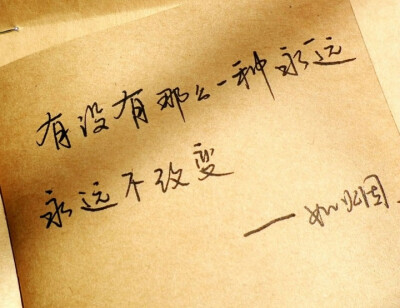 有没有那么一种永远
永远不改变
—如烟.